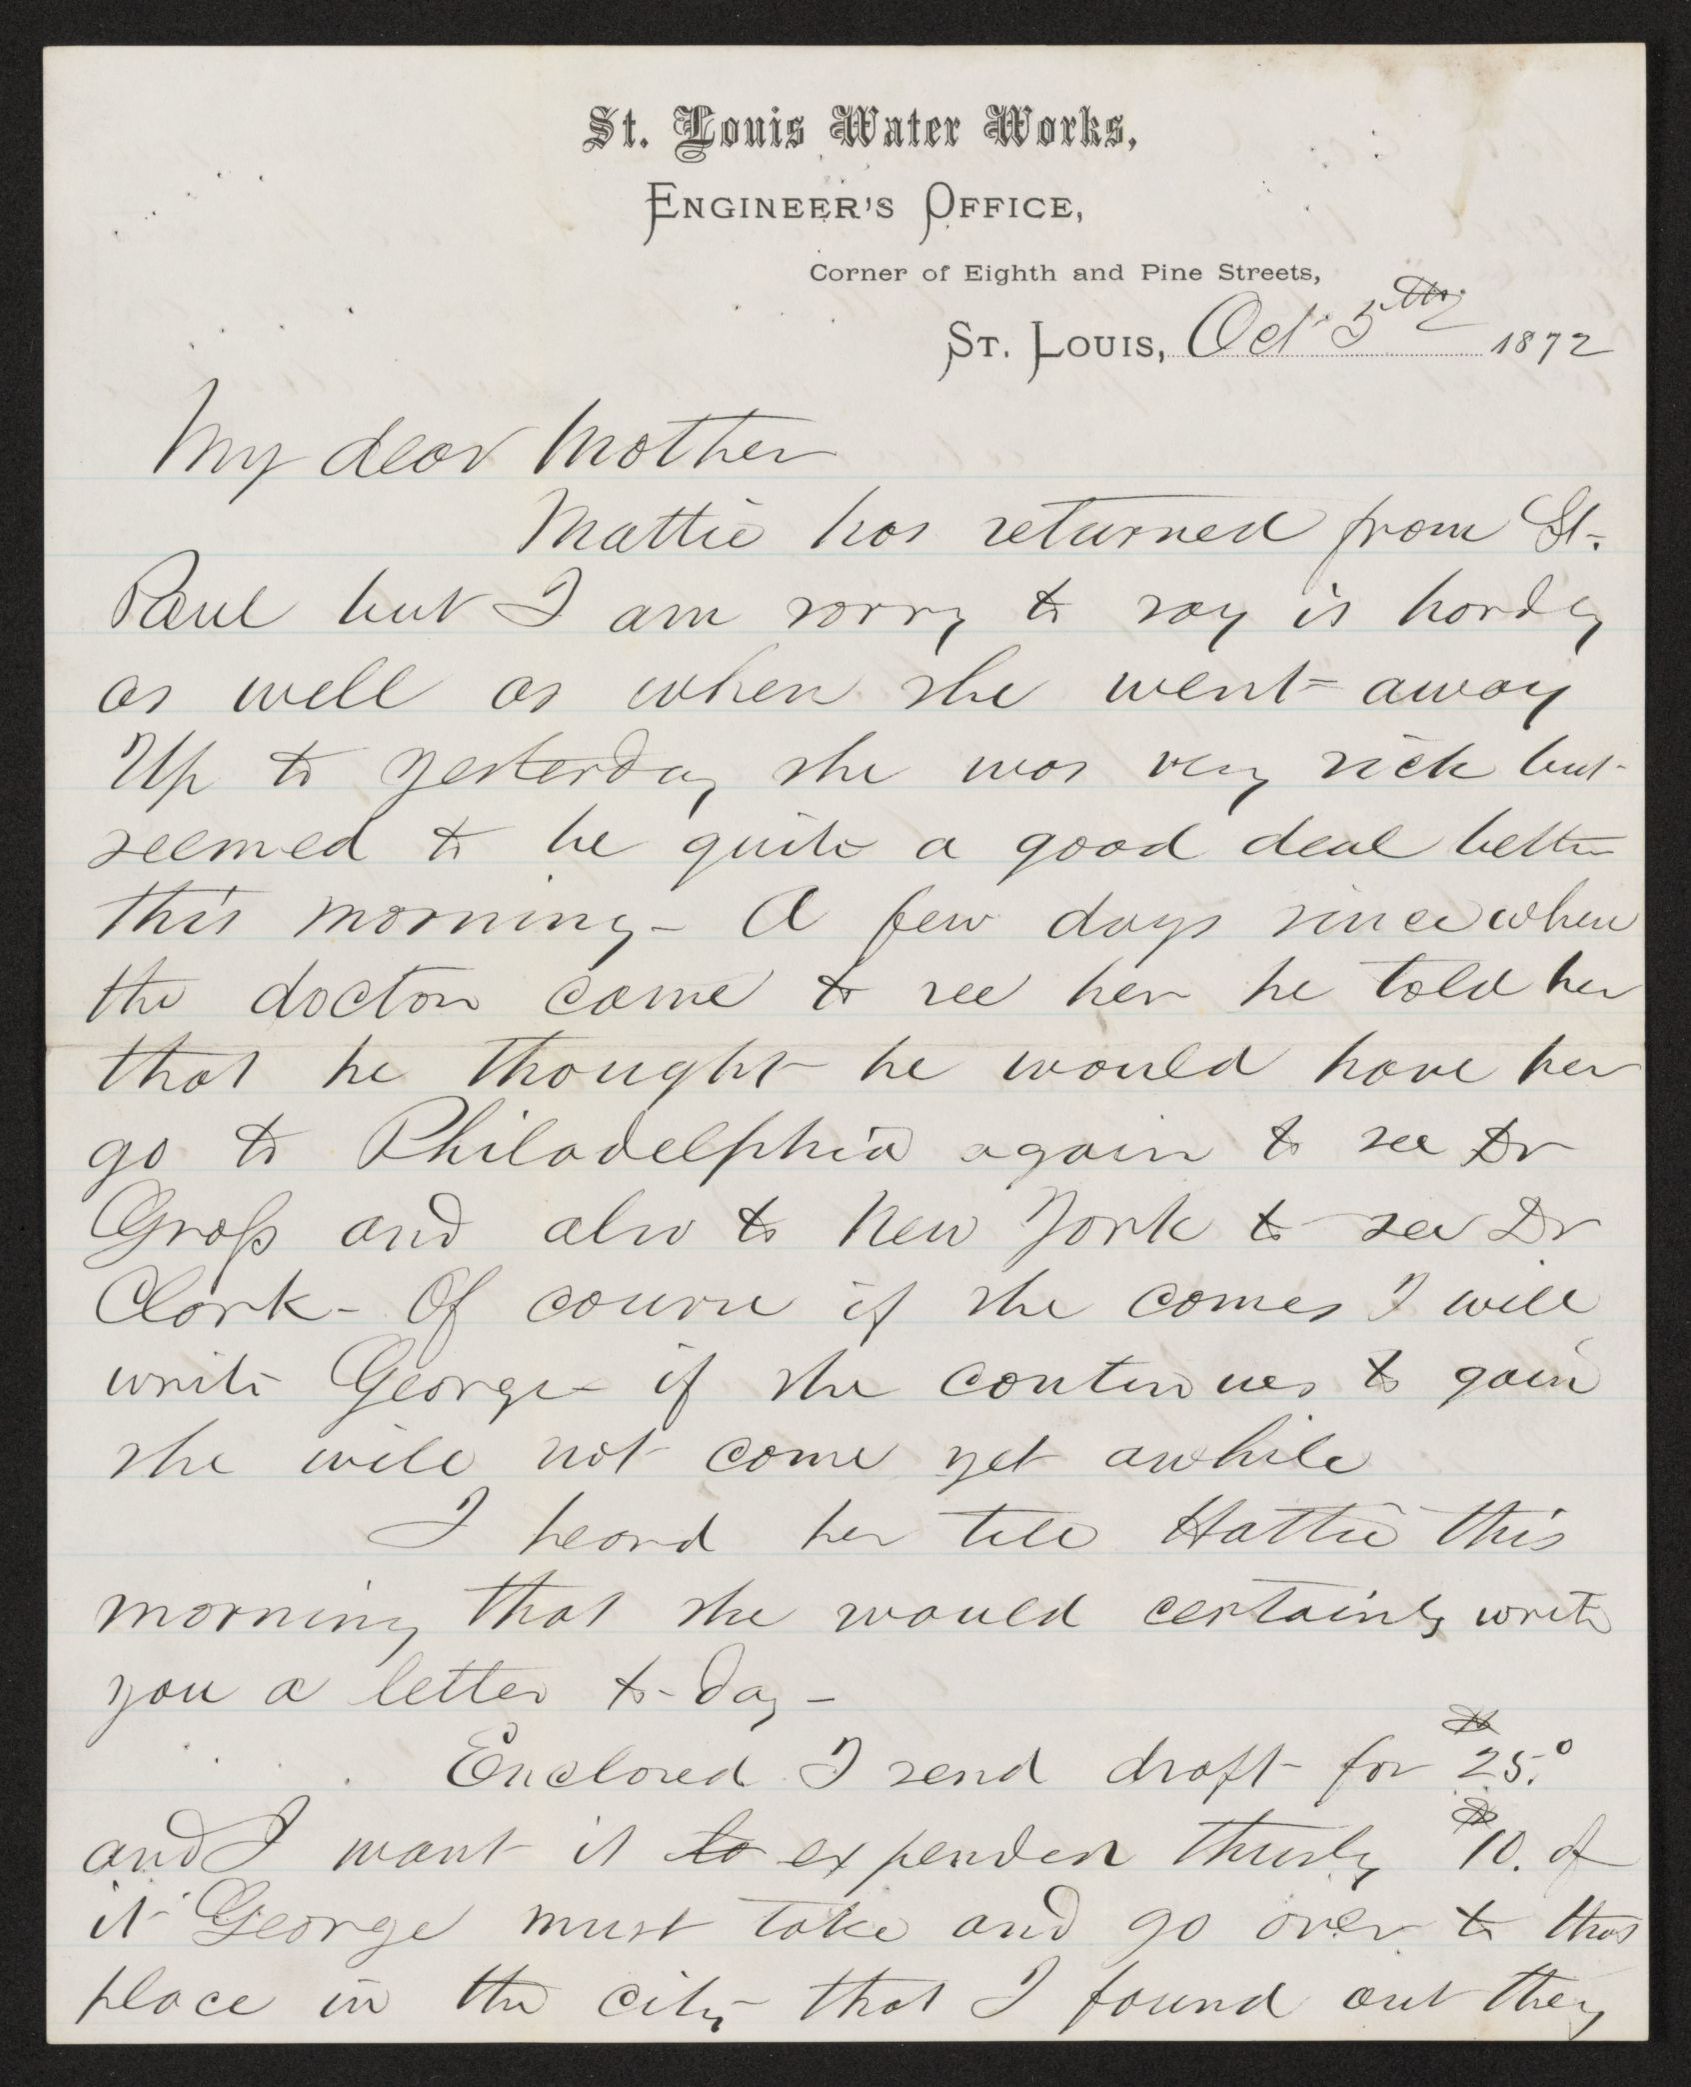 St. Louis Water Works,
Engineer's Office,
Corner of Eighth and Pine Streets,
St. Louis, Oct 5th 1872
My dear Mother
Mattie has returned from St.
Paul but I am sorry to say is hardly
as well as when she went away
Up to yesterday she was very sick but
seemed to be quite a good deal better
this morning - A few days since when
the doctor came to see her he told her
that he thought he would have her
go to Philadelphia again to see Dr
Gross and also to New York to see Dr
Clark - Of course if she comes I will
write George - if she continues to gain
she will not come yet awhile
I heard her tell Hattie this
morning that she would certainly write
you a letter to-day -
Enclosed I send draft for $25.0
and I want it to expended thusly $10. of
it George must take and go over to that
place in the city that I found out they